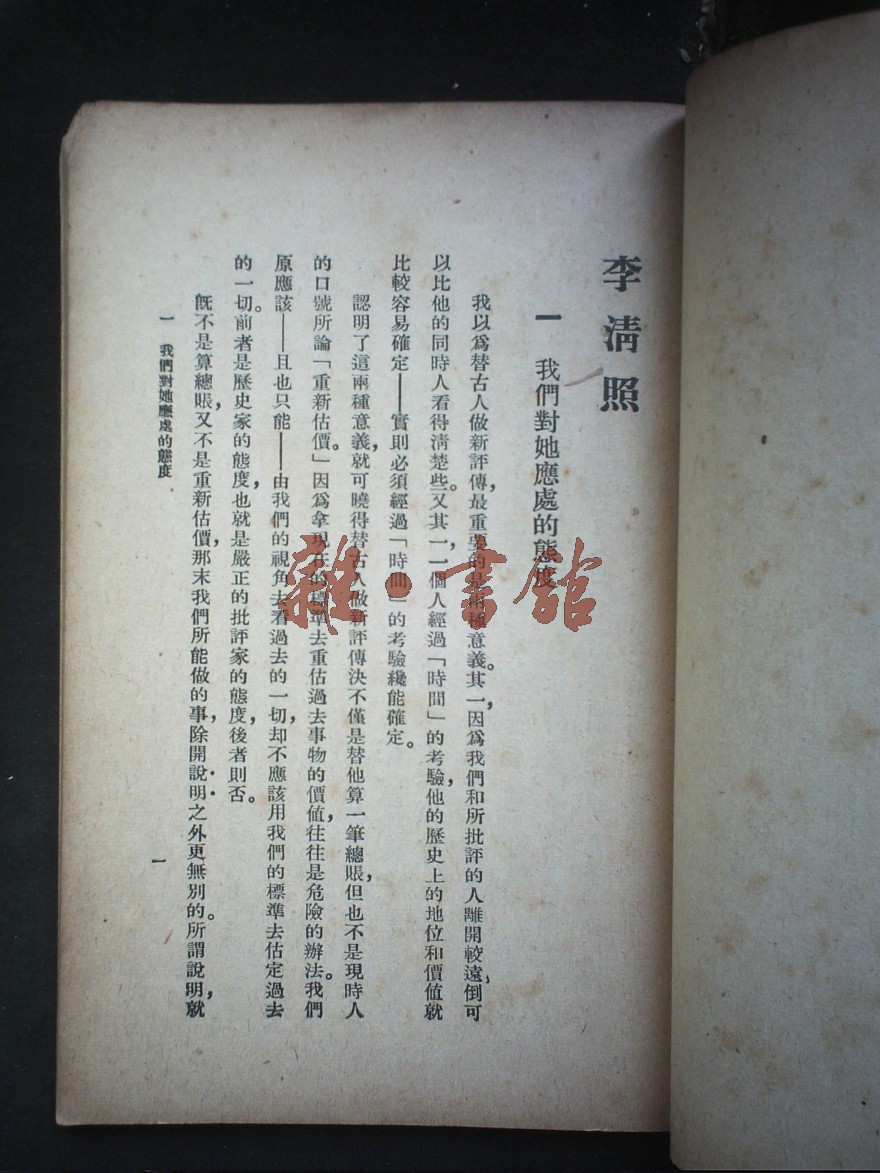 李清照
一　我們對她應處的態度
我以爲替古人做新評傳，最重要的是兩種意義。其一，因爲我們和所批評的人離開較遠，倒可
以比他的同時人看得淸楚些。又其一，一個人經過「時間」的考驗，他的歷史上的地位和價值就
比較容易確定——實則必須經過「時間」的考驗纔能確定。
認明了這兩種意義，就可曉得替古人做新評傳決不僅是替他算一筆總賬，但也不是現時人
的口號所論「重新估價」。因爲拿現在的標準去重估過去事物的價值，往往是危險的辦法。我們
原應該——且也只能——由我們的視角去看過去的一切，却不應該用我們的標準去估定過去
的一切。前者是歷史家的態度，也就是嚴正的批評家的態度，後者則否。
旣不是算總賬，又不是重新估價，那末我們所能做的事，除開說明之外更無別的。所謂說明，就
一　我們對她應處的態度
一
雜·書舘